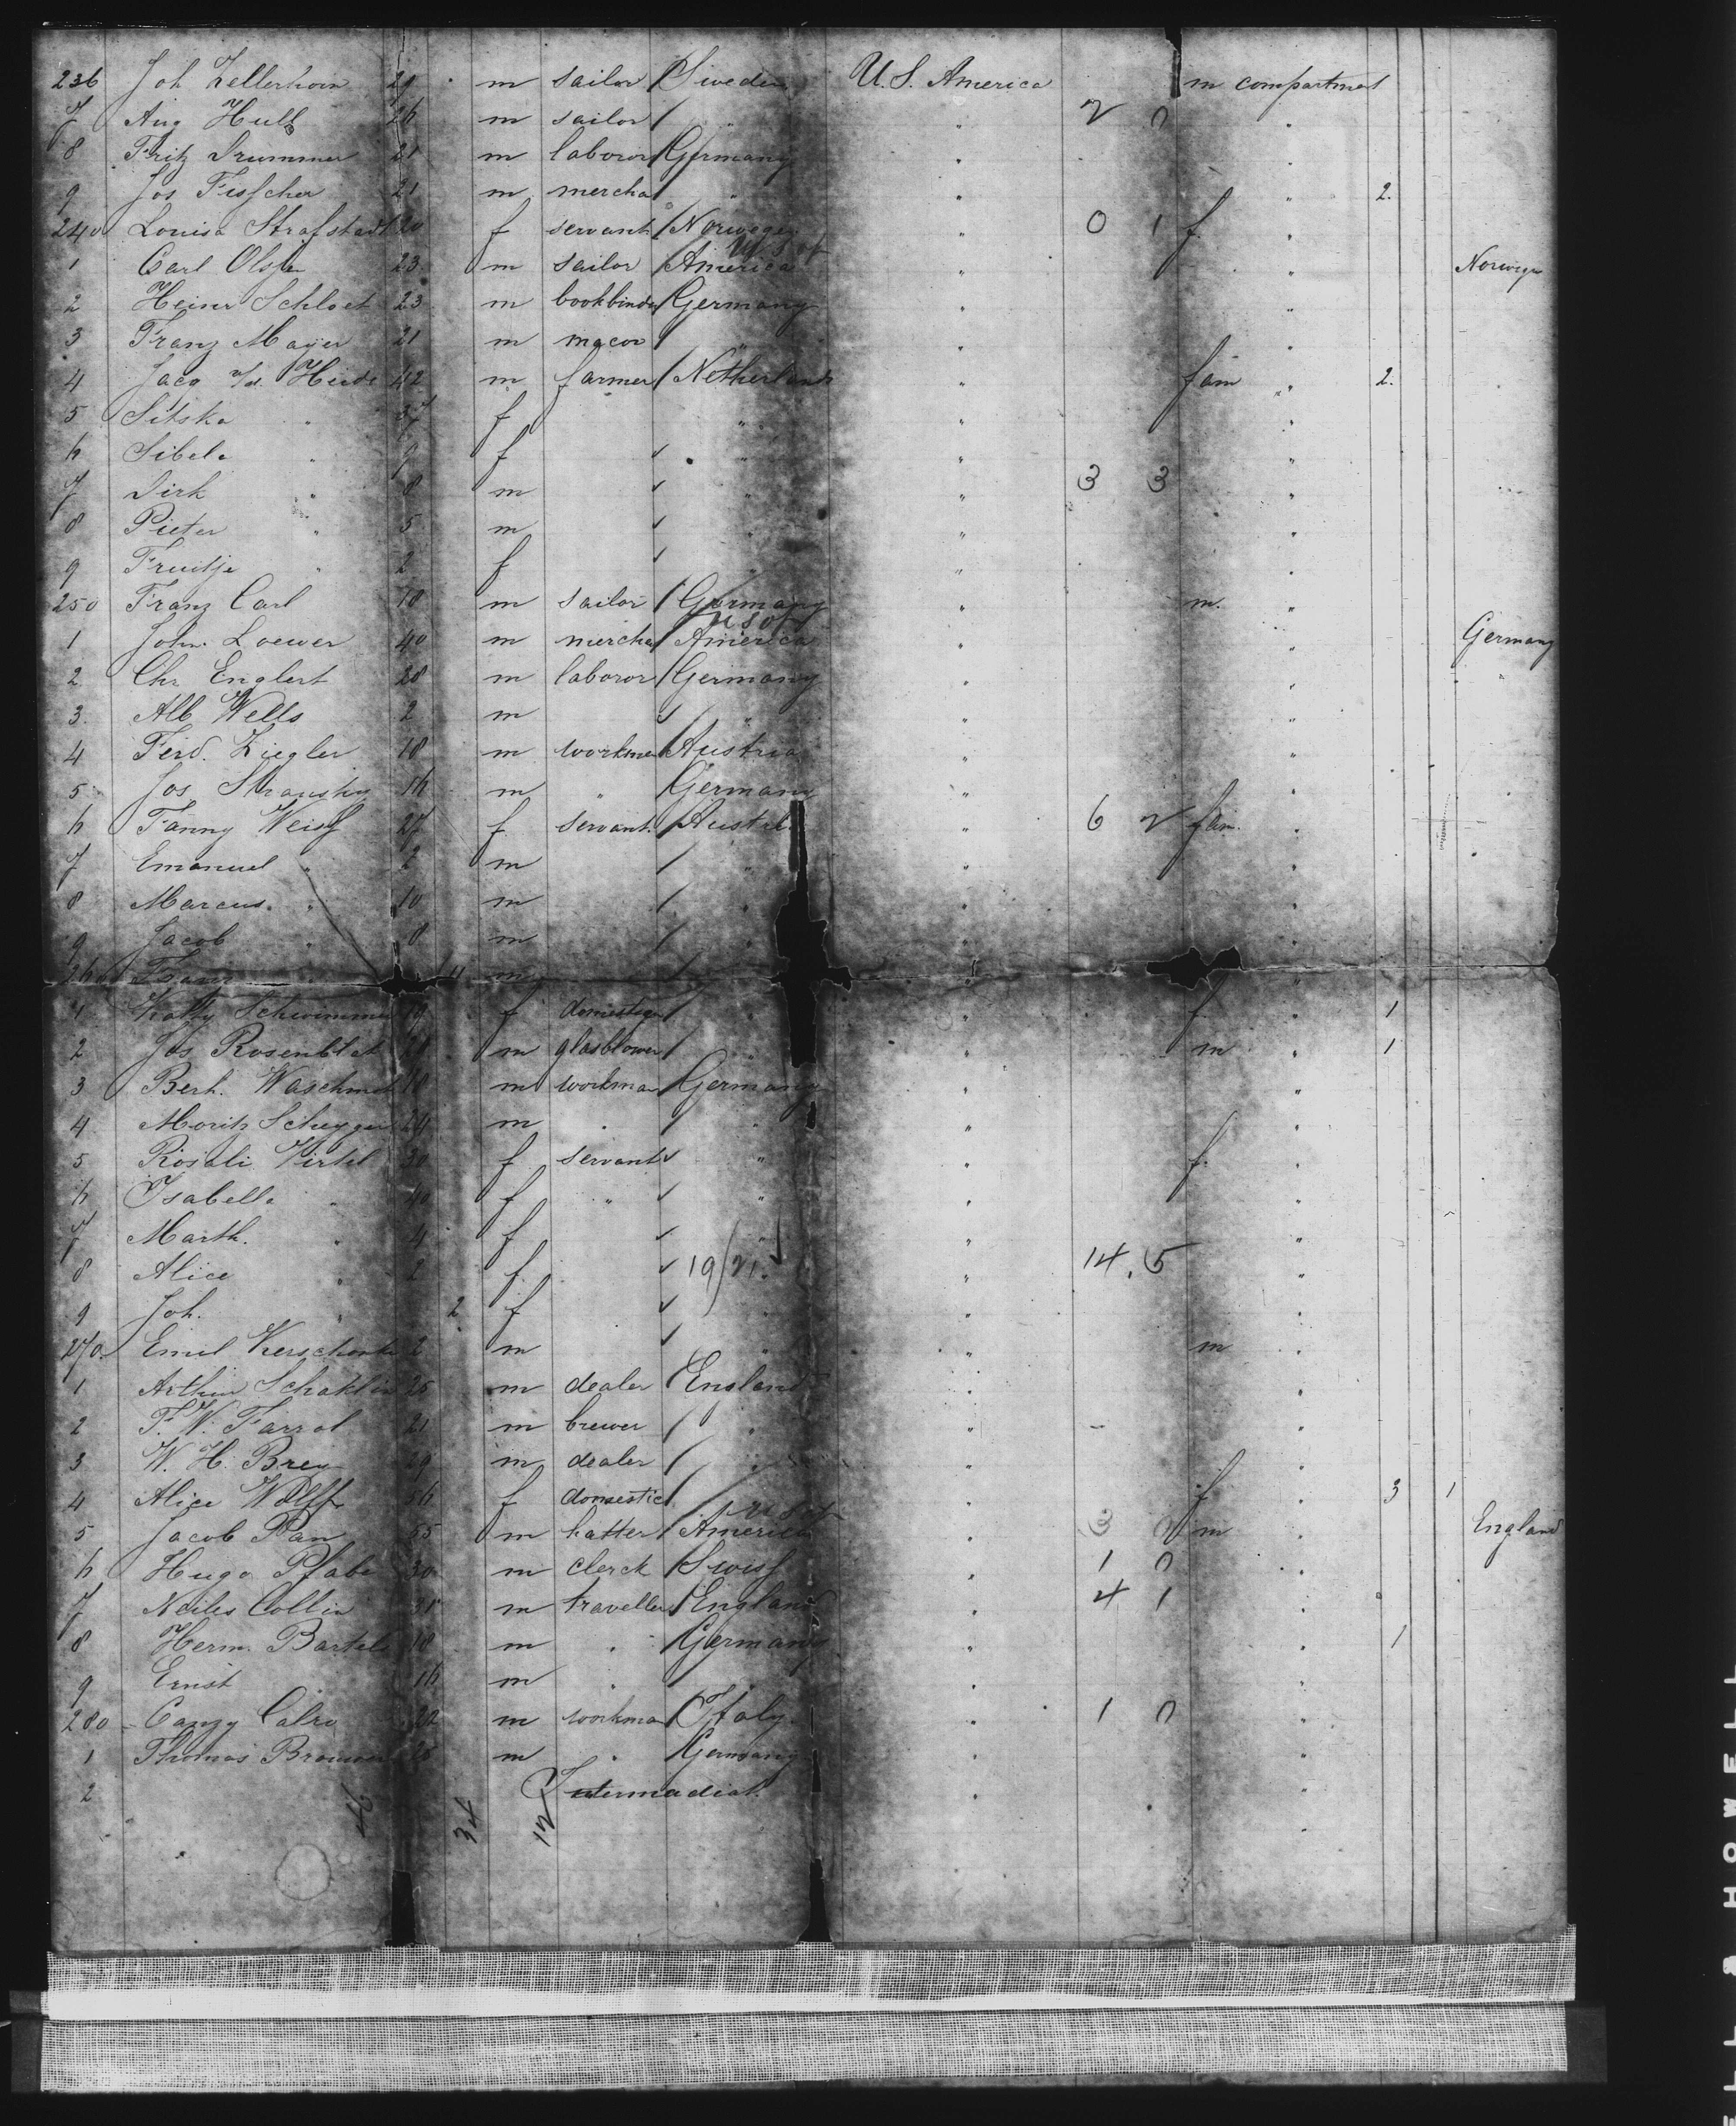 236 Joh Zellerhorn 29 m sailor Sweden U.S. America m compartmet
7 Aug Hull 26 m sailor " " 2 0 "
8 Fritz Drummer 21 m laboror Germany " "
9 Jos Fisscher 21 m mercha " " " 2.
240 Louisa Strafstadt 20 f servant Norwegen " 0 1 f "
1 Carl Olsen 23 m sailor U S of America " " Norwege
2 Heinr Schloet 23 m bookbinder Germany " "
3 Franz Mayer 21 m macor " " "
4 Jacq v/d. Heide 42 m farmer Netherlands " fam " 2.
5 Sitska " 37 f " " "
6 Sibele " 9 f " " "
7 Dirk " 8 m " " 3 3 "
8 Pieter " 5 m " " "
9 Fruitje " 2 f " " "
250 Franz Carl 18 m sailor Germany " m. "
1 John Loewer 40 m mercha U S of America " " Germany
2 Chr Englert 28 m laboror Germany " "
3 Alb Wells 2 m " " "
4 Ferd. Ziegler 18 m workman Austria " "
5 Jos Stransky 16 m " Germany " "
6 Fanny Weiss 27 f servant Austri " 6 2 fam. "
7 Emanuel " 2 m " " "
8 Marcus " 10 m " " "
9 Jacob " 8 m " " "
260 11 m
1 Katty Schwimmer 19 f domestique " " f " 1
2 Jos Rosenblat 21 m glasblower " " m " 1
3 Berh. Waschma 18 m workman Germany " "
4 Moritz 24 m " " " "
5 Rosali Virtel 30 f servant " " f. "
6 Isabella " 40 f " " " "
7 Marth. " 4 f " " "
8 Alice " 2 f 19/21 " 14. 5 "
9 Joh. " 2 f " " "
270 Emil 2 m " " m "
1 Arthur Schaklin 25 m dealer England " "
2 F. W. Farrol 21 m brewer " " - "
3 W. H. Brey 29 m dealer " " "
4 Alice Wolff 56 f domestic " f " 3 1
5 Jacob Pan 55 m hatter U S of America " 3 0 m " England
6 Hugo Pfabe 30 m clerck Swiss " 1 0 "
7 Neiles Collin 31 m traveller England " 4 1 "
8 Herm. Bartels 18 m " Germany " " 1
9 Ernst 16 m " " " "
280 Canzy Calro 22 m workman Italy " 1 0 "
1 Thomas Brouwer 28 m " Germany " "
2 Intermadiat. " "
46 34 12
BELL & HOWELL